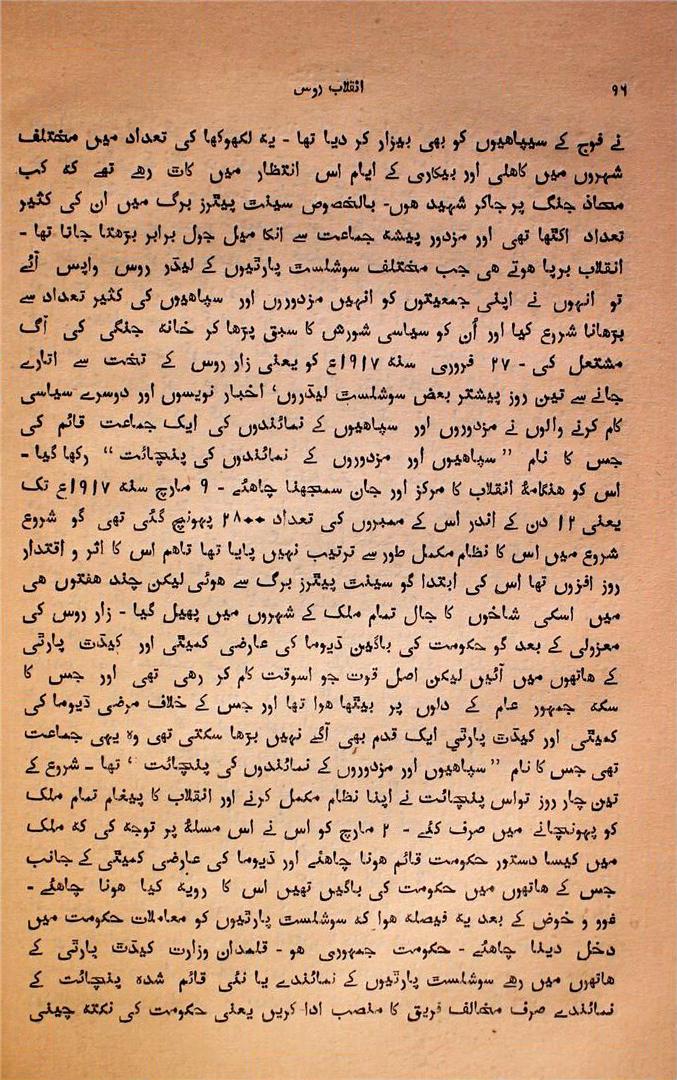 ۹۶ انقلاب روس
نے فوج کے سیپاهیوں کو بھی بیزار کر دیا تھا - یہ لکھوکھا کی تعداد میں مختلف
شہروں میں کاهلی اور بیکاری کے ایام اس انتظار میں کاٹ رهے تھے کہ کب
محاذ جنگ پر جاکر شہید هوں- بالخصوص سینٹ پیٹرز برگ میں ان کی کثیر
تعداد اکٹھا تھی اور مزدور پیشہ جماعت سے انکا میل جول برابر بڑھتا جاتا تھا -
انقلاب برپا هوتے هی جب مختلف سوشلسٹ پارٹیوں کے لیڈر روس واپس آئے
تو انہوں نے اپنی جمعیتوں کو انہیں مزدوروں اور سپاهیوں کی کثیر تعداد سے
بڑھانا شروع کیا اور اُن کو سیاسی شورش کا سبق پڑھا کر خانہ جنگی کی آگ
مشتعل کی - ۲۷ فروری سنہ ۱۹۱۷ع کو یعنی زار روس کے تخت سے اتارے
جانے سے تین روز پیشتر بعض سوشلسٹ لیڈروں' اخبار نویسوں اور دوسرے سیاسی
کام کرنے والوں نے مزدوروں اور سپاهیوں کے نمائندوں کی ایک جماعت قائم کی
جس کا نام ”سپاهیوں اور مزدوروں کے نمائندوں کی پنچائت“ رکھا گیا -
اس کو هنگامۂ انقلاب کا مرکز اور جان سمجھنا چاهئے - ۹ مارچ سنہ ۱۹۱۷ع تک
یعنی ۱۲ دن کے اندر اس کے ممبروں کی تعداد ۲۸۰۰ پہونچ گئی تھی گو شروع
شروع میں اس کا نظام مکمل طور سے ترتیب نہیں پایا تھا تاهم اس کا اثر و اقتدار
روز افزوں تھا اس کی ابتدا گو سینٹ پیٹرز برگ سے هوئی لیکن چند هفتوں هی
میں اسکی شاخوں کا جال تمام ملک کے شہروں میں پھیل گیا - زار روس کی
معزولی کے بعد گو حکومت کی باگیں ڈیوما کی عارضی کمیٹی اور کیڈٹ پارٹی
کے هاتھوں میں آئیں لیکن اصل قوت جو اسوقت کام کر رهی تھی اور جس کا
سکہ جمہور عام کے دلوں پر بیٹھا هوا تھا اور جس کے خلاف مرضی ڈیوما کی
کمیٹی اور کیڈٹ پارٹی ایک قدم بھی آگے نہیں بڑھا سکتی تھی وہ یہی جماعت
تھی جس کا نام ”سپاهیوں اور مزدوروں کے نمائندوں کی پنچائت‘ تھا - شروع کے
تین چار روز تواس پنچائت نے اپنا نظام مکمل کرنے اور انقلاب کا پیغام تمام ملک
کو پہونچانے میں صرف کئے - ۲ مارچ کو اس نے اس مسلۂ پر توجہ کی کہ ملک
میں کیسا دستور حکومت قائم هونا چاهئے اور ڈیوما کی عارضی کمیٹی کے جانب
جس کے هاتھوں میں حکومت کی باگیں تھیں اس کا رویہ کیا هونا چاهئے -
فوو و خوض کے بعد یہ فیصلہ هوا کہ سوشلسٹ پارٹیوں کو معاملات حکومت میں
دخل دینا چاهئے - حکومت جمہوری هو - قلمدان وزارت کیڈٹ پارٹی کے
هاتھوں میں رهے سوشلسٹ پارٹیوں کے نمائندے یا نئی قائم شدہ پنچائت کے
نمائندے صرف مخالف فریق کا منصب ادا کریں یعنی حکومت کی نکتہ چینی